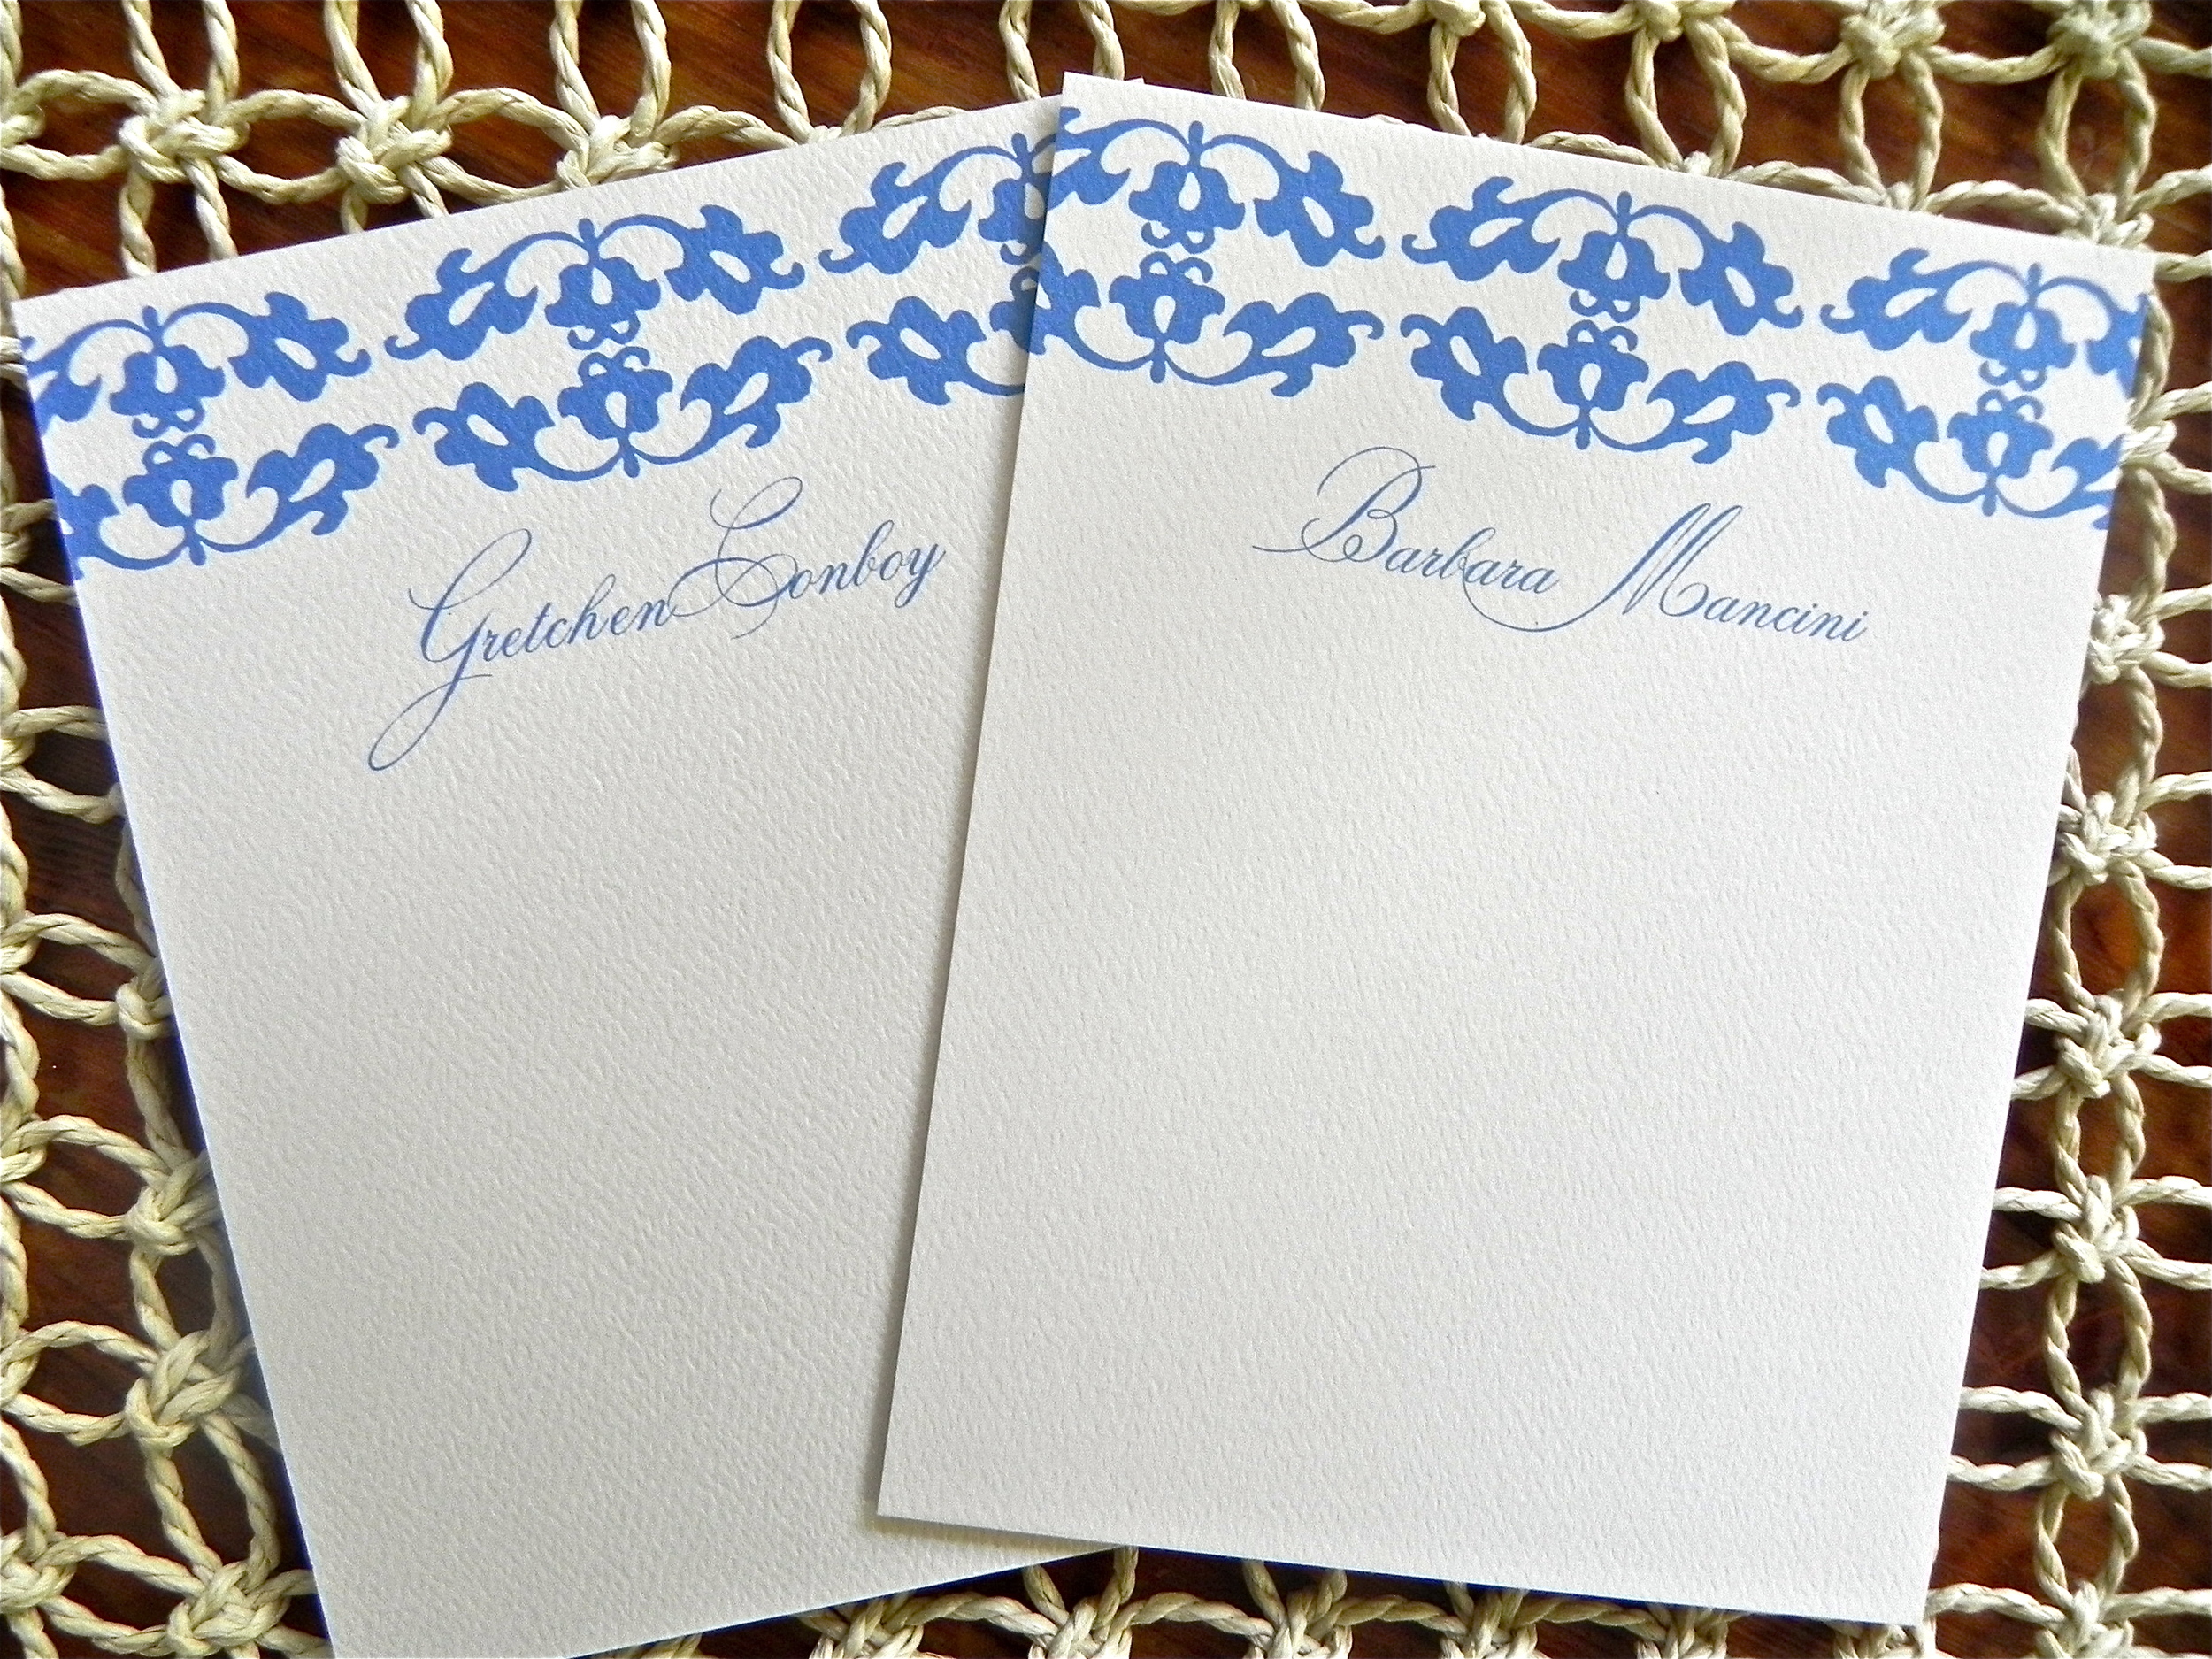 Gretchen Conboy
Barbara Mancini